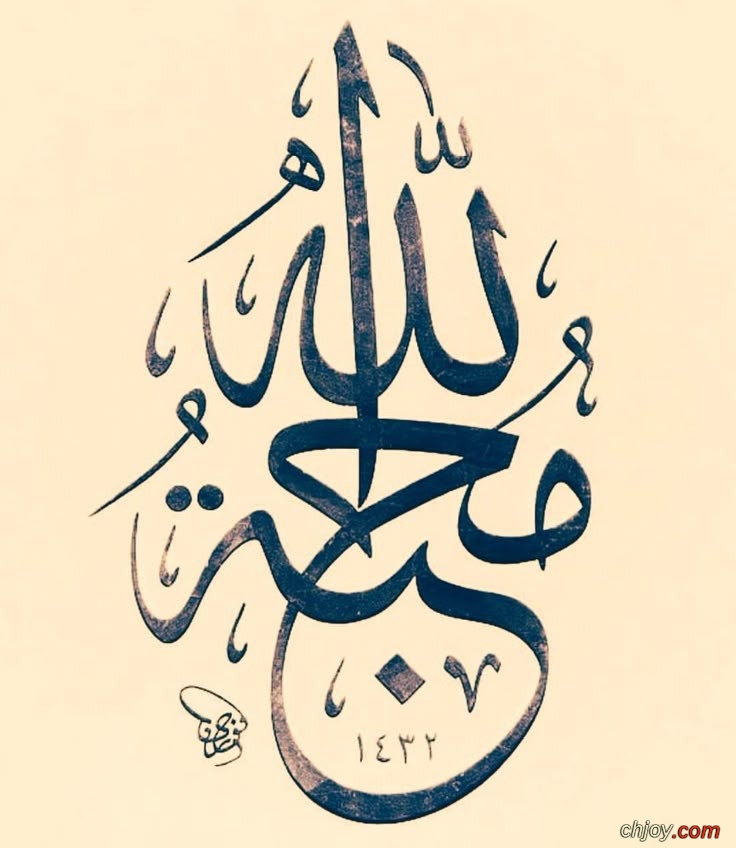 اللهُ
مُحبةُ
١٤٣٢
chjoy.com